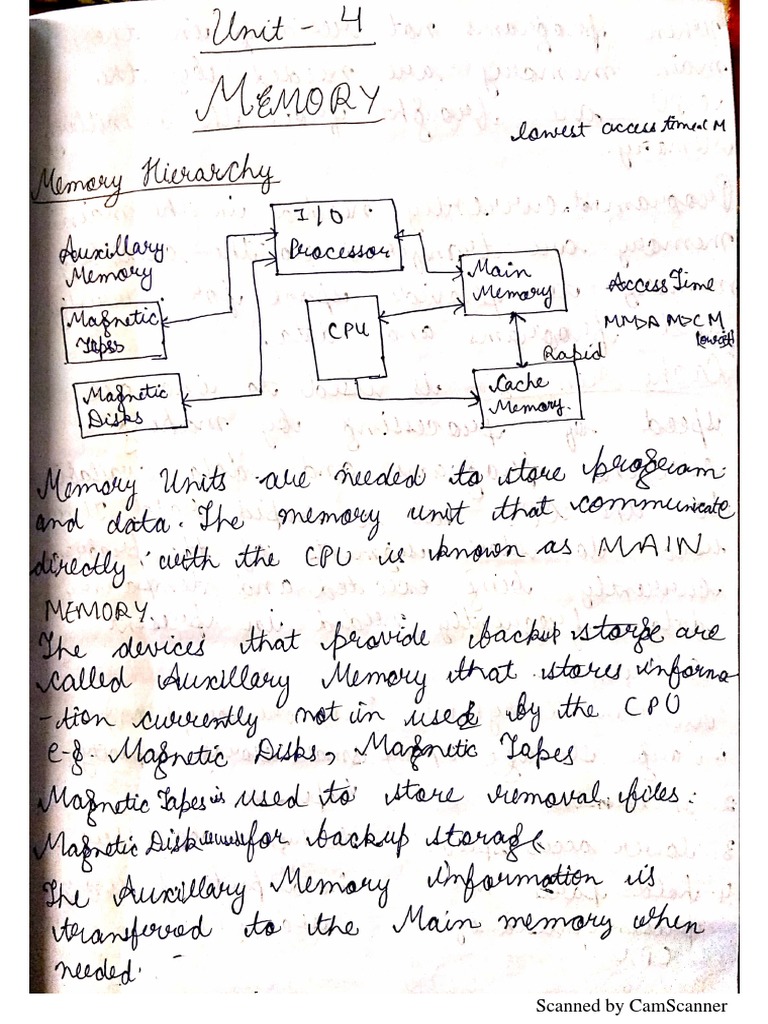 Unit - 4
MEMORY
lowest access time CM
Memory Hierarchy
I/O
Processor
Auxillary
Memory
Main
Memory
Access Time
Magnetic
Tapes
CPU
MM>A M>C M
(lowest)
Rapid
Magnetic
Disks
Cache
Memory.
Memory Units are needed to store program
and data. The memory unit that communicate
directly with the CPU is known as MAIN
MEMORY.
The devices that provide backup storge are
called Auxillary Memory that stores informa
-tion currently not in used by the CPU
e-g. Magnetic Disks, Magnetic Tapes
Magnetic Tapes is used to store removal files.
Magnetic Disk for backup storage
The Auxillary Memory information is
transferred to the Main memory when
needed.
Scanned by CamScanner